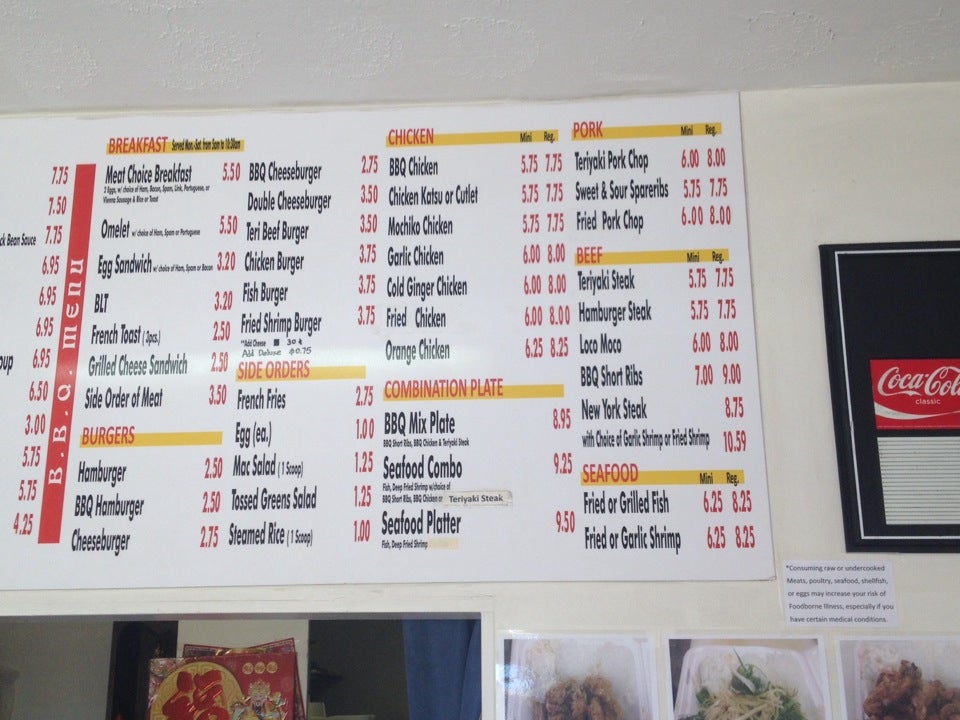 7.75
7.50
ck Bean Sauce 7.75
6.95
6.95
6.95
oup 6.95
6.50
3.00
5.75
5.75
4.25
B.B.Q. Menu
BREAKFAST Served Mon.-Sat. from 5am to 10:30am
Meat Choice Breakfast 5.50
2 Eggs, w/ choice of Ham, Bacon, Spam, Link, Portuguese, or
Vienna Sausage & Rice or Toast
Omelet w/ choice of Ham, Spam or Portuguese 5.50
Egg Sandwich w/ choice of Ham, Spam or Bacon 3.20
BLT 3.20
French Toast (3pcs.) 2.50
Grilled Cheese Sandwich 2.50
Side Order of Meat 3.50
BURGERS
Hamburger 2.50
BBQ Hamburger 2.50
Cheeseburger 2.75
BBQ Cheeseburger 2.75
Double Cheeseburger 3.50
Teri Beef Burger 3.50
Chicken Burger 3.75
Fish Burger 3.75
Fried Shrimp Burger 3.75
*Add Cheese 30¢
Add Deluxe $0.75
SIDE ORDERS
French Fries 2.75
Egg (ea.) 1.00
Mac Salad (1 Scoop) 1.25
Tossed Greens Salad 1.25
Steamed Rice (1 Scoop) 1.00
CHICKEN Mini Reg.
BBQ Chicken 5.75 7.75
Chicken Katsu or Cutlet 5.75 7.75
Mochiko Chicken 5.75 7.75
Garlic Chicken 6.00 8.00
Cold Ginger Chicken 6.00 8.00
Fried Chicken 6.00 8.00
Orange Chicken 6.25 8.25
COMBINATION PLATE
BBQ Mix Plate 8.95
BBQ Short Ribs, BBQ Chicken & Teriyaki Steak
Seafood Combo 9.25
Fish, Deep Fried Shrimp w/choice of
BBQ Short Ribs, BBQ Chicken or Teriyaki Steak
Seafood Platter 9.50
Fish, Deep Fried Shrimp
PORK Mini Reg.
Teriyaki Pork Chop 6.00 8.00
Sweet & Sour Spareribs 5.75 7.75
Fried Pork Chop 6.00 8.00
BEEF Mini Reg.
Teriyaki Steak 5.75 7.75
Hamburger Steak 5.75 7.75
Loco Moco 6.00 8.00
BBQ Short Ribs 7.00 9.00
New York Steak 8.75
with Choice of Garlic Shrimp or Fried Shrimp 10.59
SEAFOOD Mini Reg.
Fried or Grilled Fish 6.25 8.25
Fried or Garlic Shrimp 6.25 8.25
Coca-Cola
classic
*Consuming raw or undercooked
Meats, poultry, seafood, shellfish,
or eggs may increase your risk of
Foodborne Illness, especially if you
have certain medical conditions.